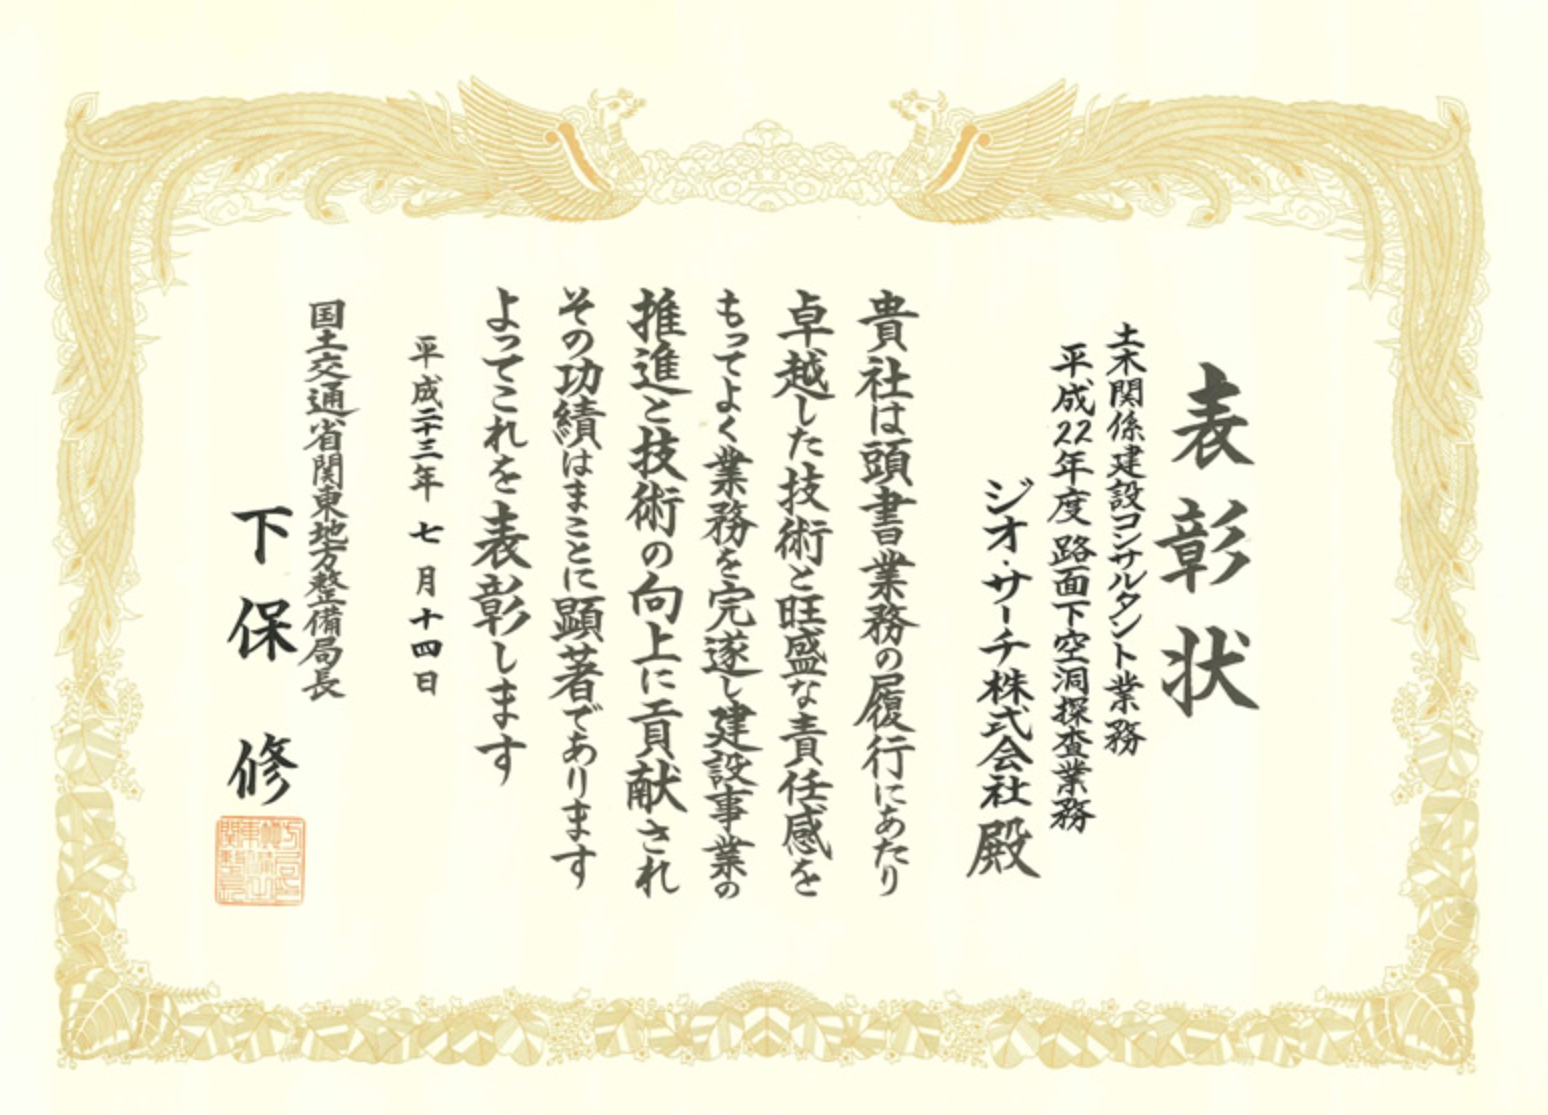 表彰状
土木関係建設コンサルタント業務
平成22年度 路面下空洞探査業務
ジオ・サーチ株式会社 殿
貴社は頭書業務の履行にあたり
卓越した技術と旺盛な責任感を
もってよく業務を完遂し建設事業の
推進と技術の向上に貢献され
その功績はまことに顕著であります
よってこれを表彰します
平成二十三年 七月十四日
国土交通省関東地方整備局長
下保 修